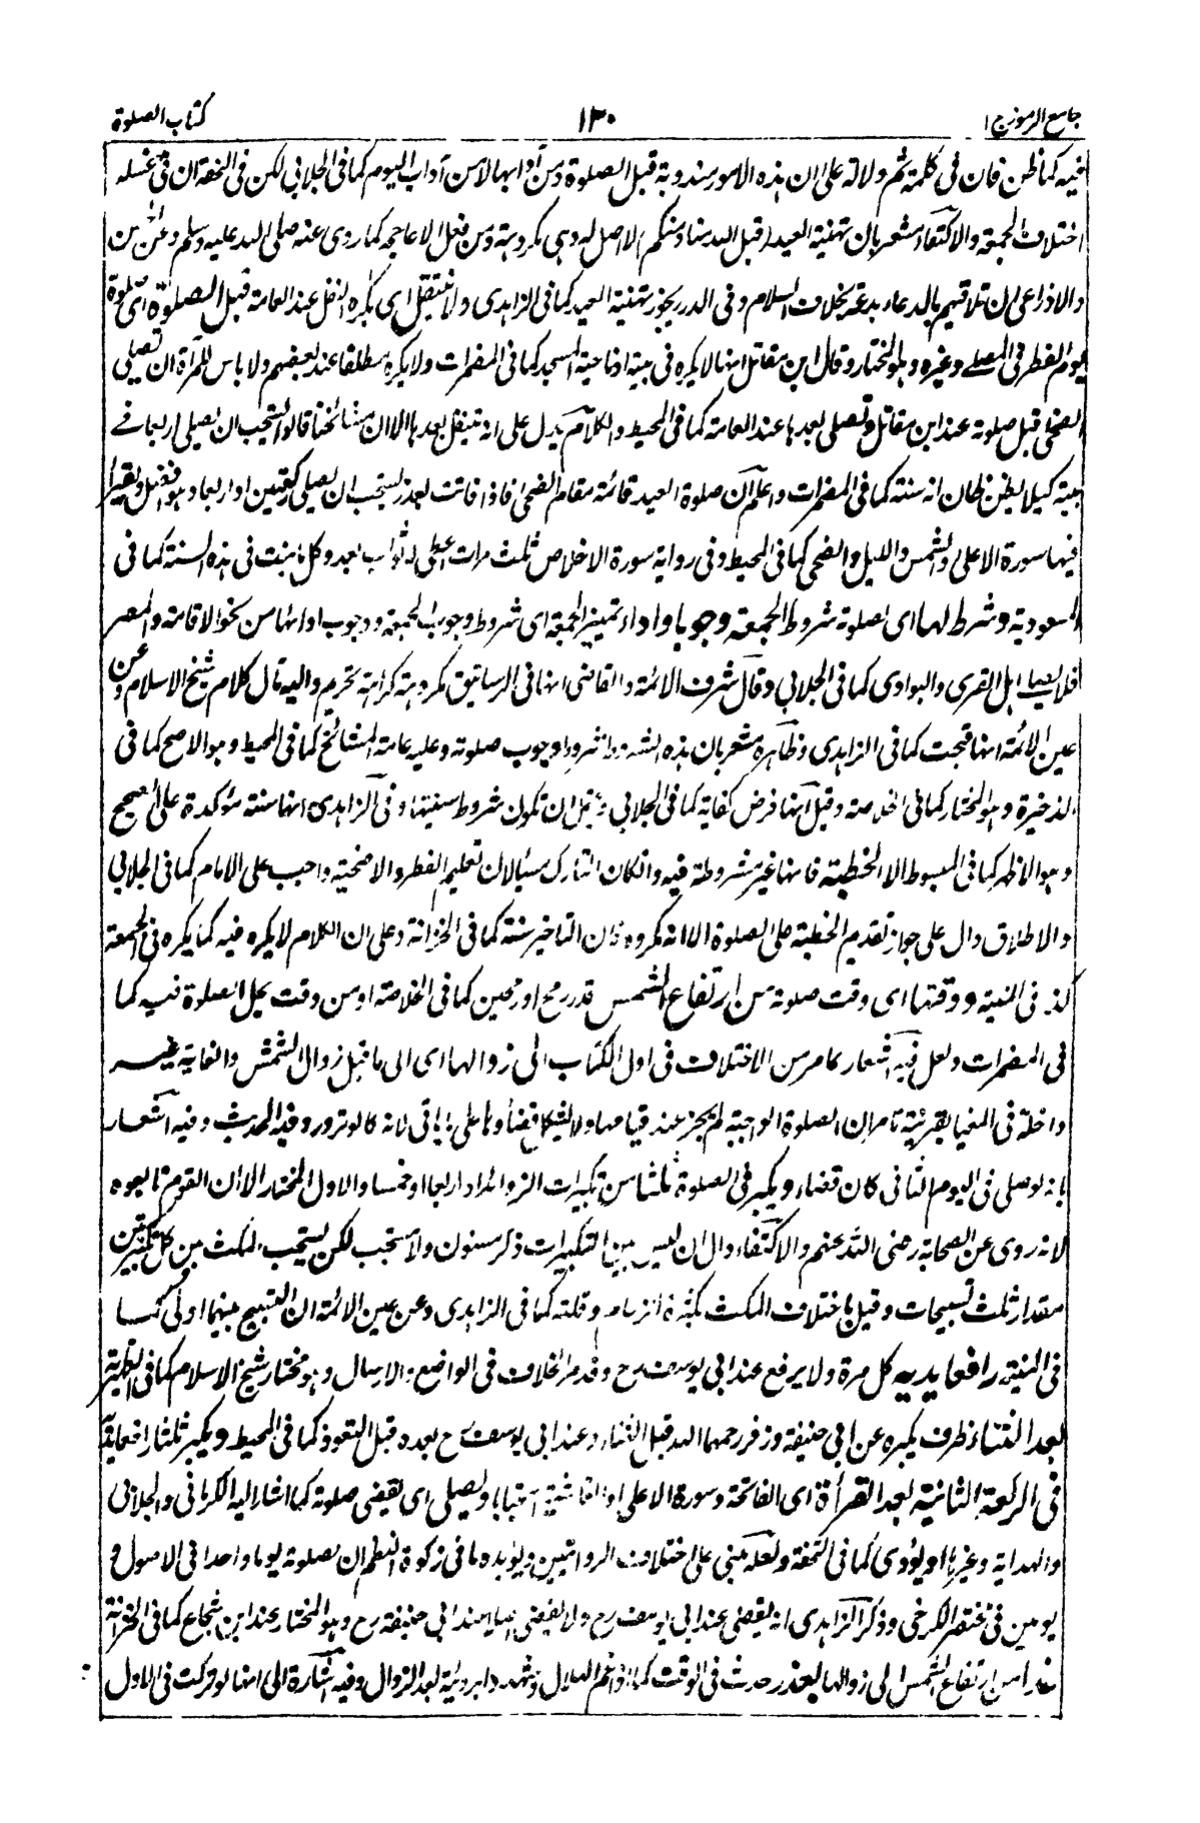 جامع الرموز ج ١
١٣٠
كتاب الصلوة
فيه كما ظن فان فى كلمة ثم دلالة على ان هذه الامور مندوبة قبل الصلوة ومن آدابها لا من آداب اليوم كما فى الجلابى لكن فى التحفة ان فى غسله
اختلاف الجمعة والاكتفاء مشعر بان تهنية العيد قبل الله منا ومنكم لا اصل له وهى مكروهة ومن فعل الاعاجم كما روى عنه صلى الله عليه وسلم وعن
والاوزاعى ان تلاقيهم بالدعاء بدعة بخلاف السلام وفى الدرر يجوز تهنية العيد كما فى الزاهدى ولا يتنفل اى يكره النفل عند العامة قبل الصلوة اى صلوة
يوم الفطر فى المصلى وغيره وهو المختار وقال ابن مقاتل انها لا يكره فى بيته او ناحية المسجد كما فى المضمرات ولا يكره مطلقا عند بعضهم ولا باس للمرأة ان تصلى
الضحى قبل صلوته عند ابن مقاتل وتصلى بعدها عند العامة كما فى المحيط والكلام يدل على انه يتنفل بعدها الا ان مشائخنا قالوا يستحب ان يصلى اربعا فى
بيته كيلا يظن ظان انه سنة كما فى المضمرات واعلم ان صلوة العيد قائمة مقام الضحى فاذا فاتت بعذر يستحب ان يصلى ركعتين او اربعا وهو افضل ويقرأ
فيها سورة الاعلى والشمس والليل والضحى كما فى المحيط وفى رواية سورة الاخلاص ثلث مرات اعطى له ثواب بعدد كل ما نبت فى هذه السنة كما فى
المسعودية وشرط لها اى لصلوته شروط الجمعة وجوبا واداء تمييز الجمعة اى شروط وجوب الجمعة ووجوب ادائها من نحو الاقامة والمصر
فلا يصلى اهل القرى والبوادى كما فى الجلابى وقال شرف الائمة والقاضى انها فى الرساتيق مكروهة كراهة تحريم واليه مال كلام شيخ الاسلام وعن
عين الائمة انها قبحت كما فى الزاهدى وظاهره مشعر بان هذه الشروط شروط وجوب صلوته وعليه عامة المشائخ كما فى المحيط وهو الاصح كما فى
الذخيرة وهو المختار كما فى الخلاصة وقيل انها فرض كفاية كما فى الجلابى ويحتمل ان تكون شروط سنيتها وفى الزاهدى انها سنة مؤكدة على الصحيح
وهو الاظهر كما فى المبسوط الا الخطبة فانها غير مشروطة فيه وان كان التارك مسيئا لان تعليم الفطر والاضحية واجب على الامام كما فى الجلابى
والاطلاق دال على جواز تقديم الخطبة على الصلوة الا انه مكروه فان التاخير سنة كما فى الخزانة وعلى ان الكلام لا يكره فيه كما يكره فى الجمعة
كذا فى المنية ووقتها اى وقت صلوته من ارتفاع الشمس قدر رمح او رمحين كما فى الخلاصة او من وقت يحل الصلوة فيه كما
فى المضمرات ولعل فيه اشعارا بما مر من الاختلاف فى اول الكتاب الى زوالها اى الى ما قبل زوال الشمس والغاية غير
داخلة فى المغيا بقرينة ما مر ان الصلوة الواجبة لم يجز عند قيامها ولا يشكل
بانه لو صلى فى اليوم الثانى كان قضاء ويكبر فى الصلوة ثلثا من تكبيرات الزوائد او اربعا او خمسا والاول المختار الا ان القوم تابعوه
لانه روى عن الصحابة رضى الله عنهم والاكتفاء دال ان ليس بين التكبيرات ذكر مسنون ولا مستحب لكن يستحب المكث بين كل تكبيرتين
مقدار ثلث تسبيحات وقيل باختلاف المكث بكثرة الزحام وقلته كما فى الزاهدى وعن عين الائمة ان التسبيح بينهما اولى كما
فى المنية رافعا يديه كل مرة ولا يرفع عند ابى يوسف رح وقد مر الخلاف فى الواضع والارسال وهو مختار شيخ الاسلام كما فى الظهيرية
بعد الثناء ظرف يكبره عن ابى حنيفة وزفر رحمهما الله قبل الثناء وعند ابى يوسف رح بعده قبل التعوذ كما فى المحيط ويكبر ثلثا رافعا يديه
فى الركعة الثانية بعد القرأة اى الفاتحة وسورة الاعلى او الغاشية استحبابا ويصلى اى يقضى صلوته كما اشار اليه الكرمانى والجلابى
والهداية وغيرها او يؤدى كما فى التحفة ولعله مبنى على اختلاف الروايتين ويؤيده ما فى زكوة النظم ان لصلوته يوما واحدا فى الاصول و
يومين فى مختصر الكرخى وذكر الزاهدى انه يقضى عند ابى يوسف رح ولا يقضى اصلا عند ابى حنيفة رح وهو المختار عند ابن شجاع كما فى الخزانة
غدا من ارتفاع الشمس الى زوالها بعذر حدث فى الوقت كما اذا غم الهلال وشهدوا برويته بعد الزوال وفيه اشارة الى انها لو تركت فى الاول